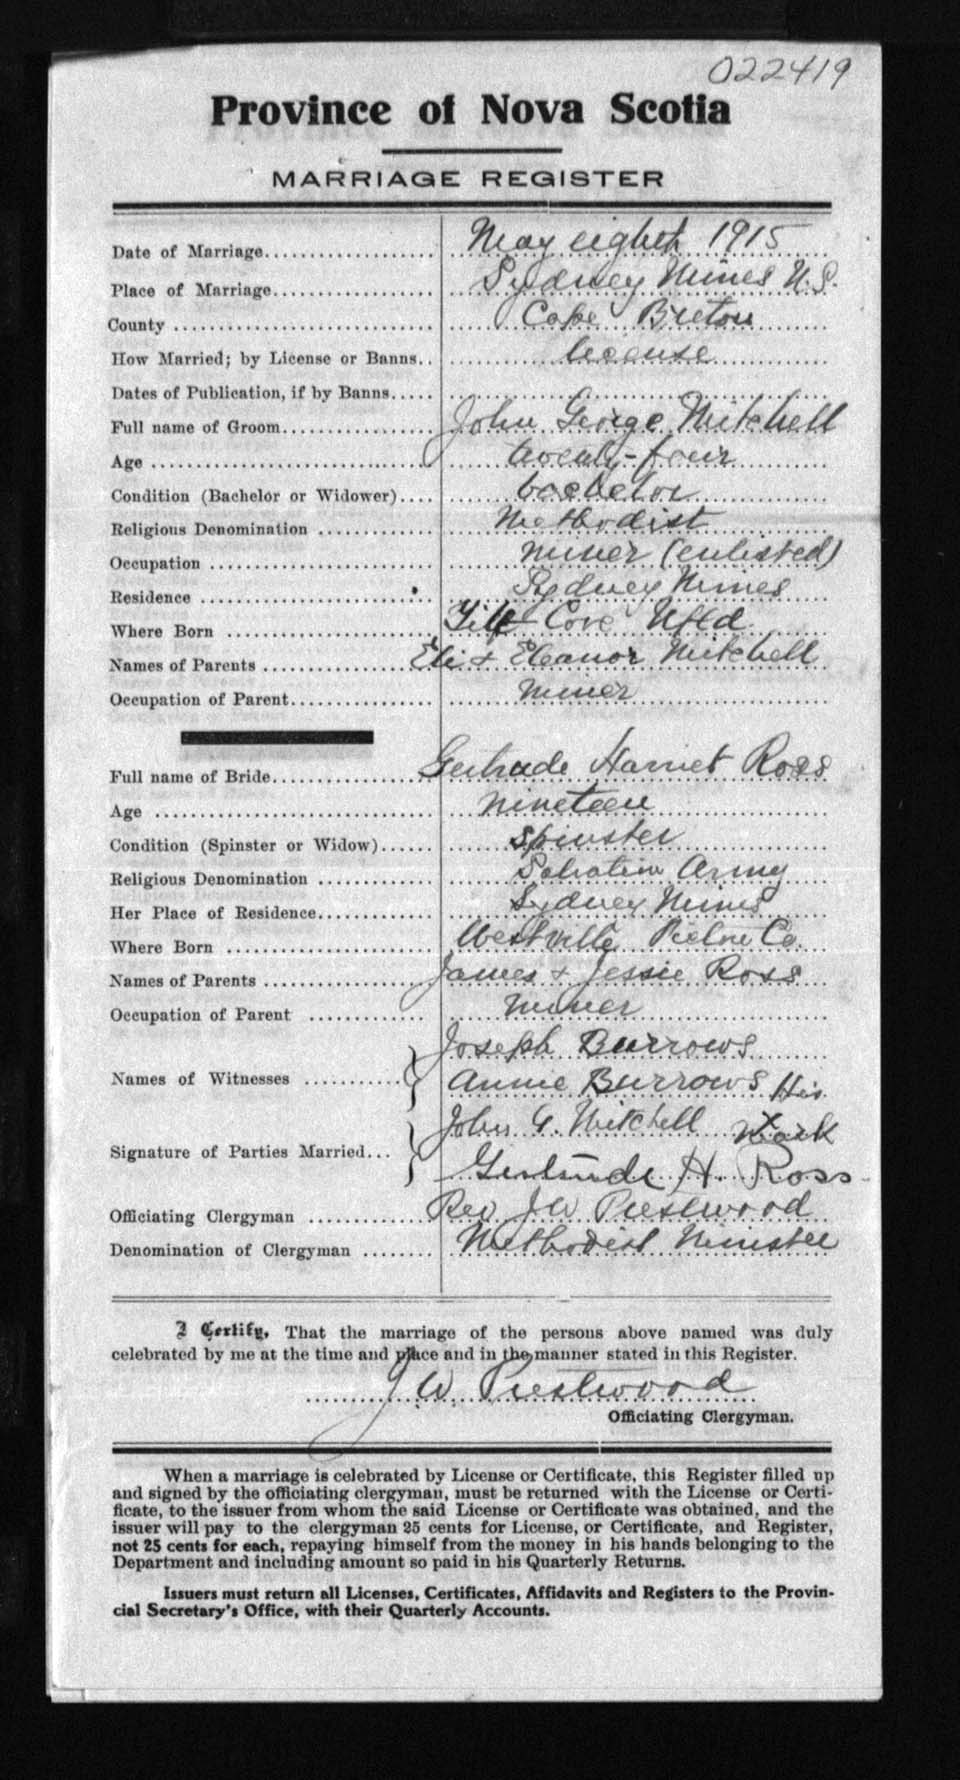 022419
Province of Nova Scotia
MARRIAGE REGISTER
Date of Marriage.................... May eighth 1915
Place of Marriage................... Sydney Mines N.S.
County ............................. Cape Breton
How Married; by License or Banns.. license
Dates of Publication, if by Banns.....
Full name of Groom.................. John George Mitchell
Age ................................ twenty-four
Condition (Bachelor or Widower).... bachelor
Religious Denomination ............. Methodist
Occupation ......................... miner (enlisted)
Residence .......................... Sydney Mines
Where Born ......................... Tilt Cove Nfld
Names of Parents ................... Eli + Eleanor Mitchell
Occupation of Parent................ miner
Full name of Bride.................. Gertrude Harriet Ross
Age ................................ nineteen
Condition (Spinster or Widow)...... spinster
Religious Denomination ............. Salvation Army
Her Place of Residence.............. Sydney Mines
Where Born ......................... Westville Pictou Co.
Names of Parents ................... James + Jessie Ross
Occupation of Parent ............... miner
Joseph Burrows
Names of Witnesses ........... Annie Burrows
His
John G. Mitchell X mark
Signature of Parties Married...
Gertrude H. Ross
Officiating Clergyman .............. Rev J W Prestwood
Denomination of Clergyman ........ Methodist Minister
I Certify, That the marriage of the persons above named was duly
celebrated by me at the time and place and in the manner stated in this Register.
J. W. Prestwood
Officiating Clergyman.
When a marriage is celebrated by License or Certificate, this Register filled up
and signed by the officiating clergyman, must be returned with the License or Certi-
ficate, to the issuer from whom the said License or Certificate was obtained, and the
issuer will pay to the clergyman 25 cents for License, or Certificate, and Register,
not 25 cents for each, repaying himself from the money in his hands belonging to the
Department and including amount so paid in his Quarterly Returns.
Issuers must return all Licenses, Certificates, Affidavits and Registers to the Provin-
cial Secretary's Office, with their Quarterly Accounts.